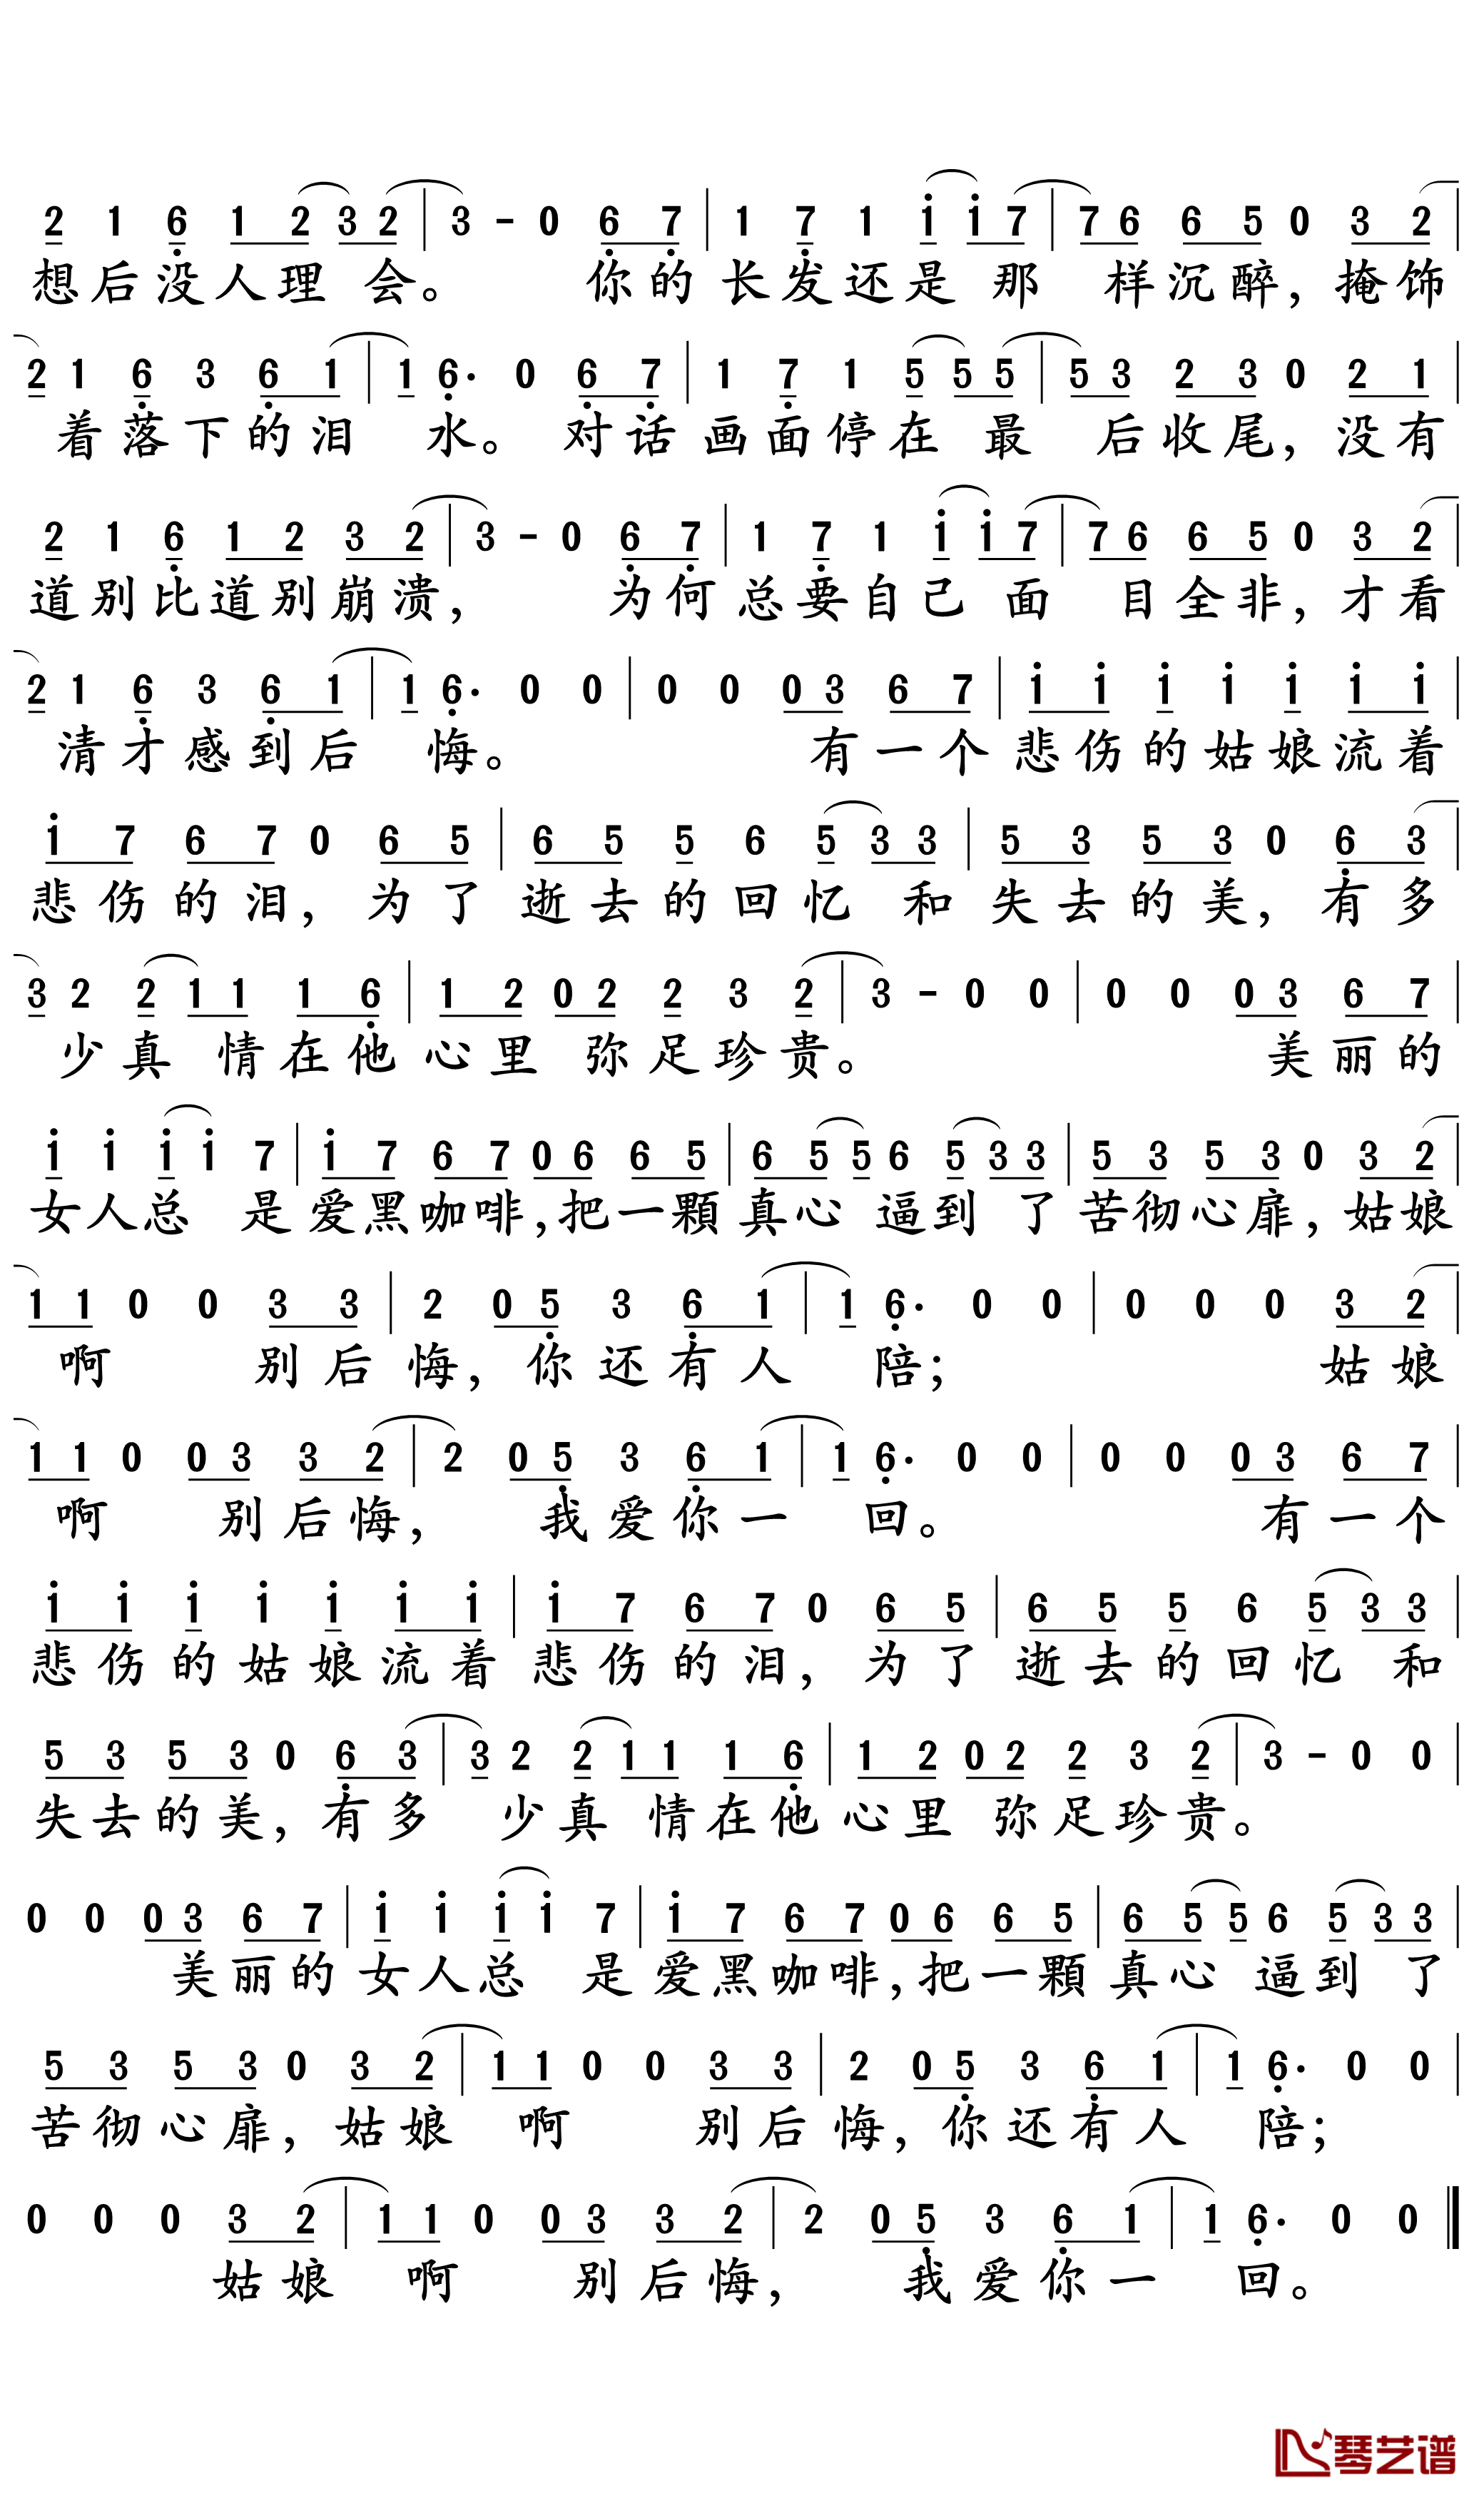 2 1 6 1 2 3 2 | 3 - 0 6 7 | 1 7 1 1 1 7 | 7 6 6 5 0 3 2 |
想后没人理会。 你的长发还是那 样沉醉，掩饰
2 1 6 3 6 1 | 1 6· 0 6 7 | 1 7 1 5 5 5 | 5 3 2 3 0 2 1 |
着落下的泪 水。对话画面停在最 后收尾，没有
2 1 6 1 2 3 2 | 3 - 0 6 7 | 1 7 1 1 1 7 | 7 6 6 5 0 3 2 |
道别比道别崩溃， 为何总要自己面 目全非，才看
2 1 6 3 6 1 | 1 6· 0 0 | 0 0 0 3 6 7 | 1 1 1 1 1 1 1 |
清才感到后 悔。 有一个悲伤的姑娘流着
1 7 6 7 0 6 5 | 6 5 5 6 5 3 3 | 5 3 5 3 0 6 3 |
悲伤的泪，为了逝去的回忆 和失去的美，有多
3 2 2 1 1 1 6 | 1 2 0 2 2 3 2 | 3 - 0 0 | 0 0 0 3 6 7 |
少真 情在他心里 弥足珍贵。 美丽的
1 1 1 1 7 | 1 7 6 7 0 6 6 5 | 6 5 5 6 5 3 3 | 5 3 5 3 0 3 2 |
女人总 是爱黑咖啡，把一颗真心 逼到 了苦彻心扉，姑娘
1 1 0 0 3 3 | 2 0 5 3 6 1 | 1 6· 0 0 | 0 0 0 3 2 |
啊 别后悔，你还有人 陪； 姑娘
1 1 0 0 3 3 2 | 2 0 5 3 6 1 | 1 6· 0 0 | 0 0 0 3 6 7 |
啊 别后悔， 我爱你一 回。 有一个
1 1 1 1 1 1 1 | 1 7 6 7 0 6 5 | 6 5 5 6 5 3 3 |
悲伤的姑娘流着悲伤的泪，为了逝去的回忆 和
5 3 5 3 0 6 3 | 3 2 2 1 1 1 6 | 1 2 0 2 2 3 2 | 3 - 0 0 |
失去的美，有多 少真 情在他心里 弥足珍贵。
0 0 0 3 6 7 | 1 1 1 1 7 | 1 7 6 7 0 6 6 5 | 6 5 5 6 5 3 3 |
美丽的女人总 是爱黑咖啡，把一颗真心 逼到 了
5 3 5 3 0 3 2 | 1 1 0 0 3 3 | 2 0 5 3 6 1 | 1 6· 0 0 |
苦彻心扉，姑娘 啊 别后悔，你还有人 陪；
0 0 0 3 2 | 1 1 0 0 3 3 2 | 2 0 5 3 6 1 | 1 6· 0 0 |
姑娘 啊 别后悔， 我爱你一 回。
琴艺谱